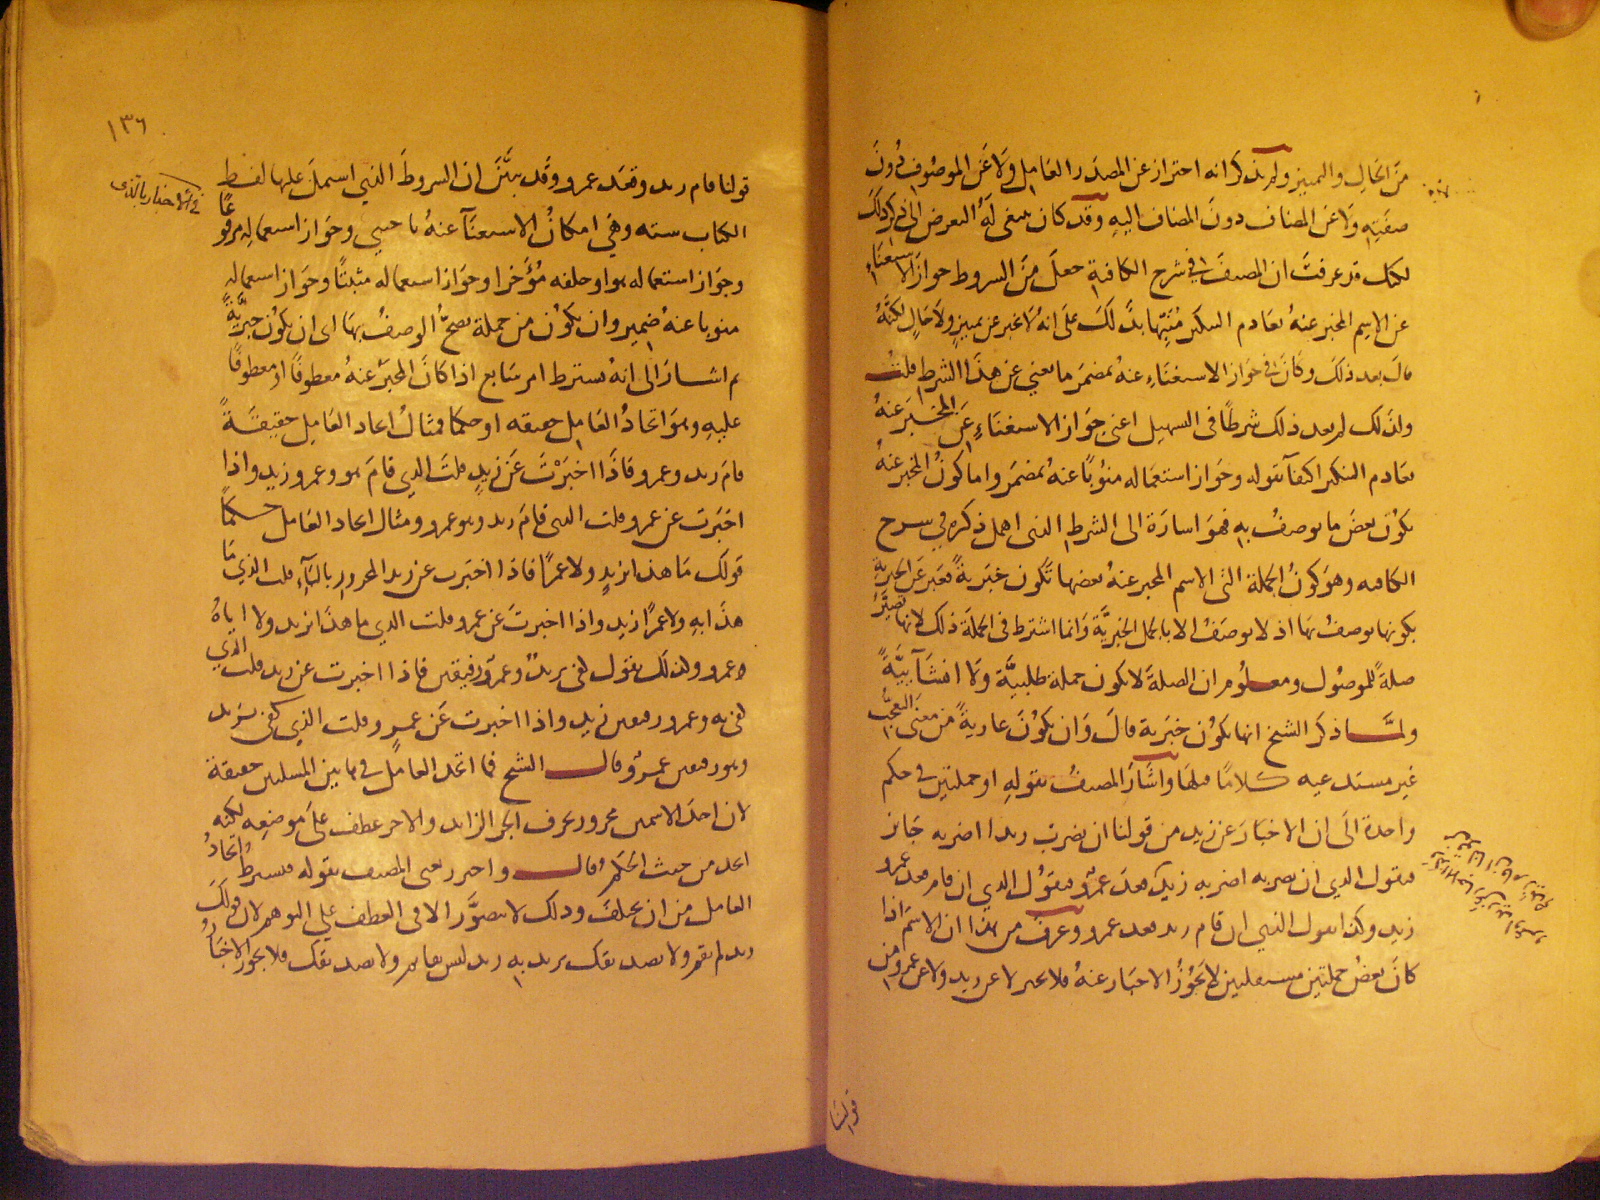 من الحال والتمييز ولم يذكر انه احتراز عن المصدر العامل ولا عن الموصوف دون
صفته ولا عن المضاف دون المضاف اليه وقد كان ينبغي له التعرض الى ذكر ذلك
لكنك قد عرفت ان المصنف في شرح الكافية جعل من الشروط جواز الاستغناء
عن الاسم المخبر عنه بعادم التنكير منبها بذلك على انه لا يخبر عن تمييز ولا حال لكنه
قال بعد ذلك وكان في جواز الاستغناء عنه بمضمر ما يغني عن هذا الشرط قلت
ولذلك لم يعد ذلك شرطا في التسهيل اعني جواز الاستغناء عن المخبر عنه
بعادم التنكير اكتفآ بقوله وجواز استعماله منوبا عنه بمضمر واما كون المخبر عنه
يكون بعض ما يوصف به فهو اشارة الى الشرط الذي اهمل ذكره في شرح
الكافيه وهو كون الجملة التي الاسم المخبر عنه بعضها تكون خبرية فعبر عن الخبرية
بكونها يوصف بها اذ لا يوصف الا بالجمل الخبرية وانما اشترط في الجملة ذلك لانها تصير
صلة للموصول ومعلوم ان الصلة لا تكون جملة طلبية ولا انشآيية
ولما ذكر الشيخ انها تكون خبرية قال وان يكون عارية من معنى التعجب
غير مستدعيه كلاما قبلها واشار المصنف بقوله او جملتين في حكم
واحدة الى ان الاخبار عن زيد من قولنا ان يضرب زيدا اضربه جايز
فيقول الذي ان يضربه اضربه زيد وقعد عمرو فيقول الذي ان قام قعد عمرو
زيد وكذا يقول الذي ان قام زيد قعد عمرو وعرف من هذا ان الاسم اذا
كان بعض جملتين مستقلتين لا يجوز الاخبار عنه فلا يخبر لا عن زيد ولا عن عمرو من
قولنا
١٣٦
في الاخبار بالذي
قولنا قام زيد وقعد عمرو وقد بيّن ان الشروط الذي اشتمل عليها لفظ
الكتاب سته وهي امكان الاستغنآ عنه باجنبي وجواز استعماله مرفوعا
وجواز استعماله هو او خلفه مؤخرا وجواز استعماله مثبتا وجواز استعماله
منوبا عنه ضمير وان يكون من جملة يصح الوصف بها اى ان يكون خبرية
ثم اشار الى انه يشترط امر سابع اذا كان المخبر عنه معطوفا او معطوفا
عليه وهو اتحاد العامل حقيقه او حكما فمثال اتحاد العامل حقيقة
قام زيد وعمرو فاذا اخبرت عن زيد قلت الذي قام هو وعمرو زيد واذا
اخبرت عن عمرو قلت الذي قام زيد وهو عمرو ومثال اتحاد العامل حكما
قولك ما هذا بزيد ولا عمرا فاذا اخبرت عن زيد المجرور بالبآء قلت الذي ما
هذا به ولا عمرا زيد واذا اخبرت عن عمرو قلت الذي ما هذا بزيد ولا اياه
عمرو ولذلك يقول لقي بريد وعمرو رفيقين فاذا اخبرت عن زيد قلت الذي
لقي به وعمرو رفيقين زيد واذا اخبرت عن عمرو قلت الذي كفى بزيد
وهو رفيقين عمرو وقال الشيخ فما اتحد العامل في هاتين المسلتين حقيقة
لان احد الاسمين مجرور بحرف الجر الزايد والاخر عطف على موضعه لكنه
اتحد من حيث الحكم وقال واحترز يعني المصنف بقوله فيشترط اتحاد
العامل من ان يختلف وذلك لا يتصور الا في العطف على التوهم لان قولك
زيد لم يقم ولا بصديقك يريد به زيد ليس بقايم ولا بصديقك فلا يجوز الاخبار